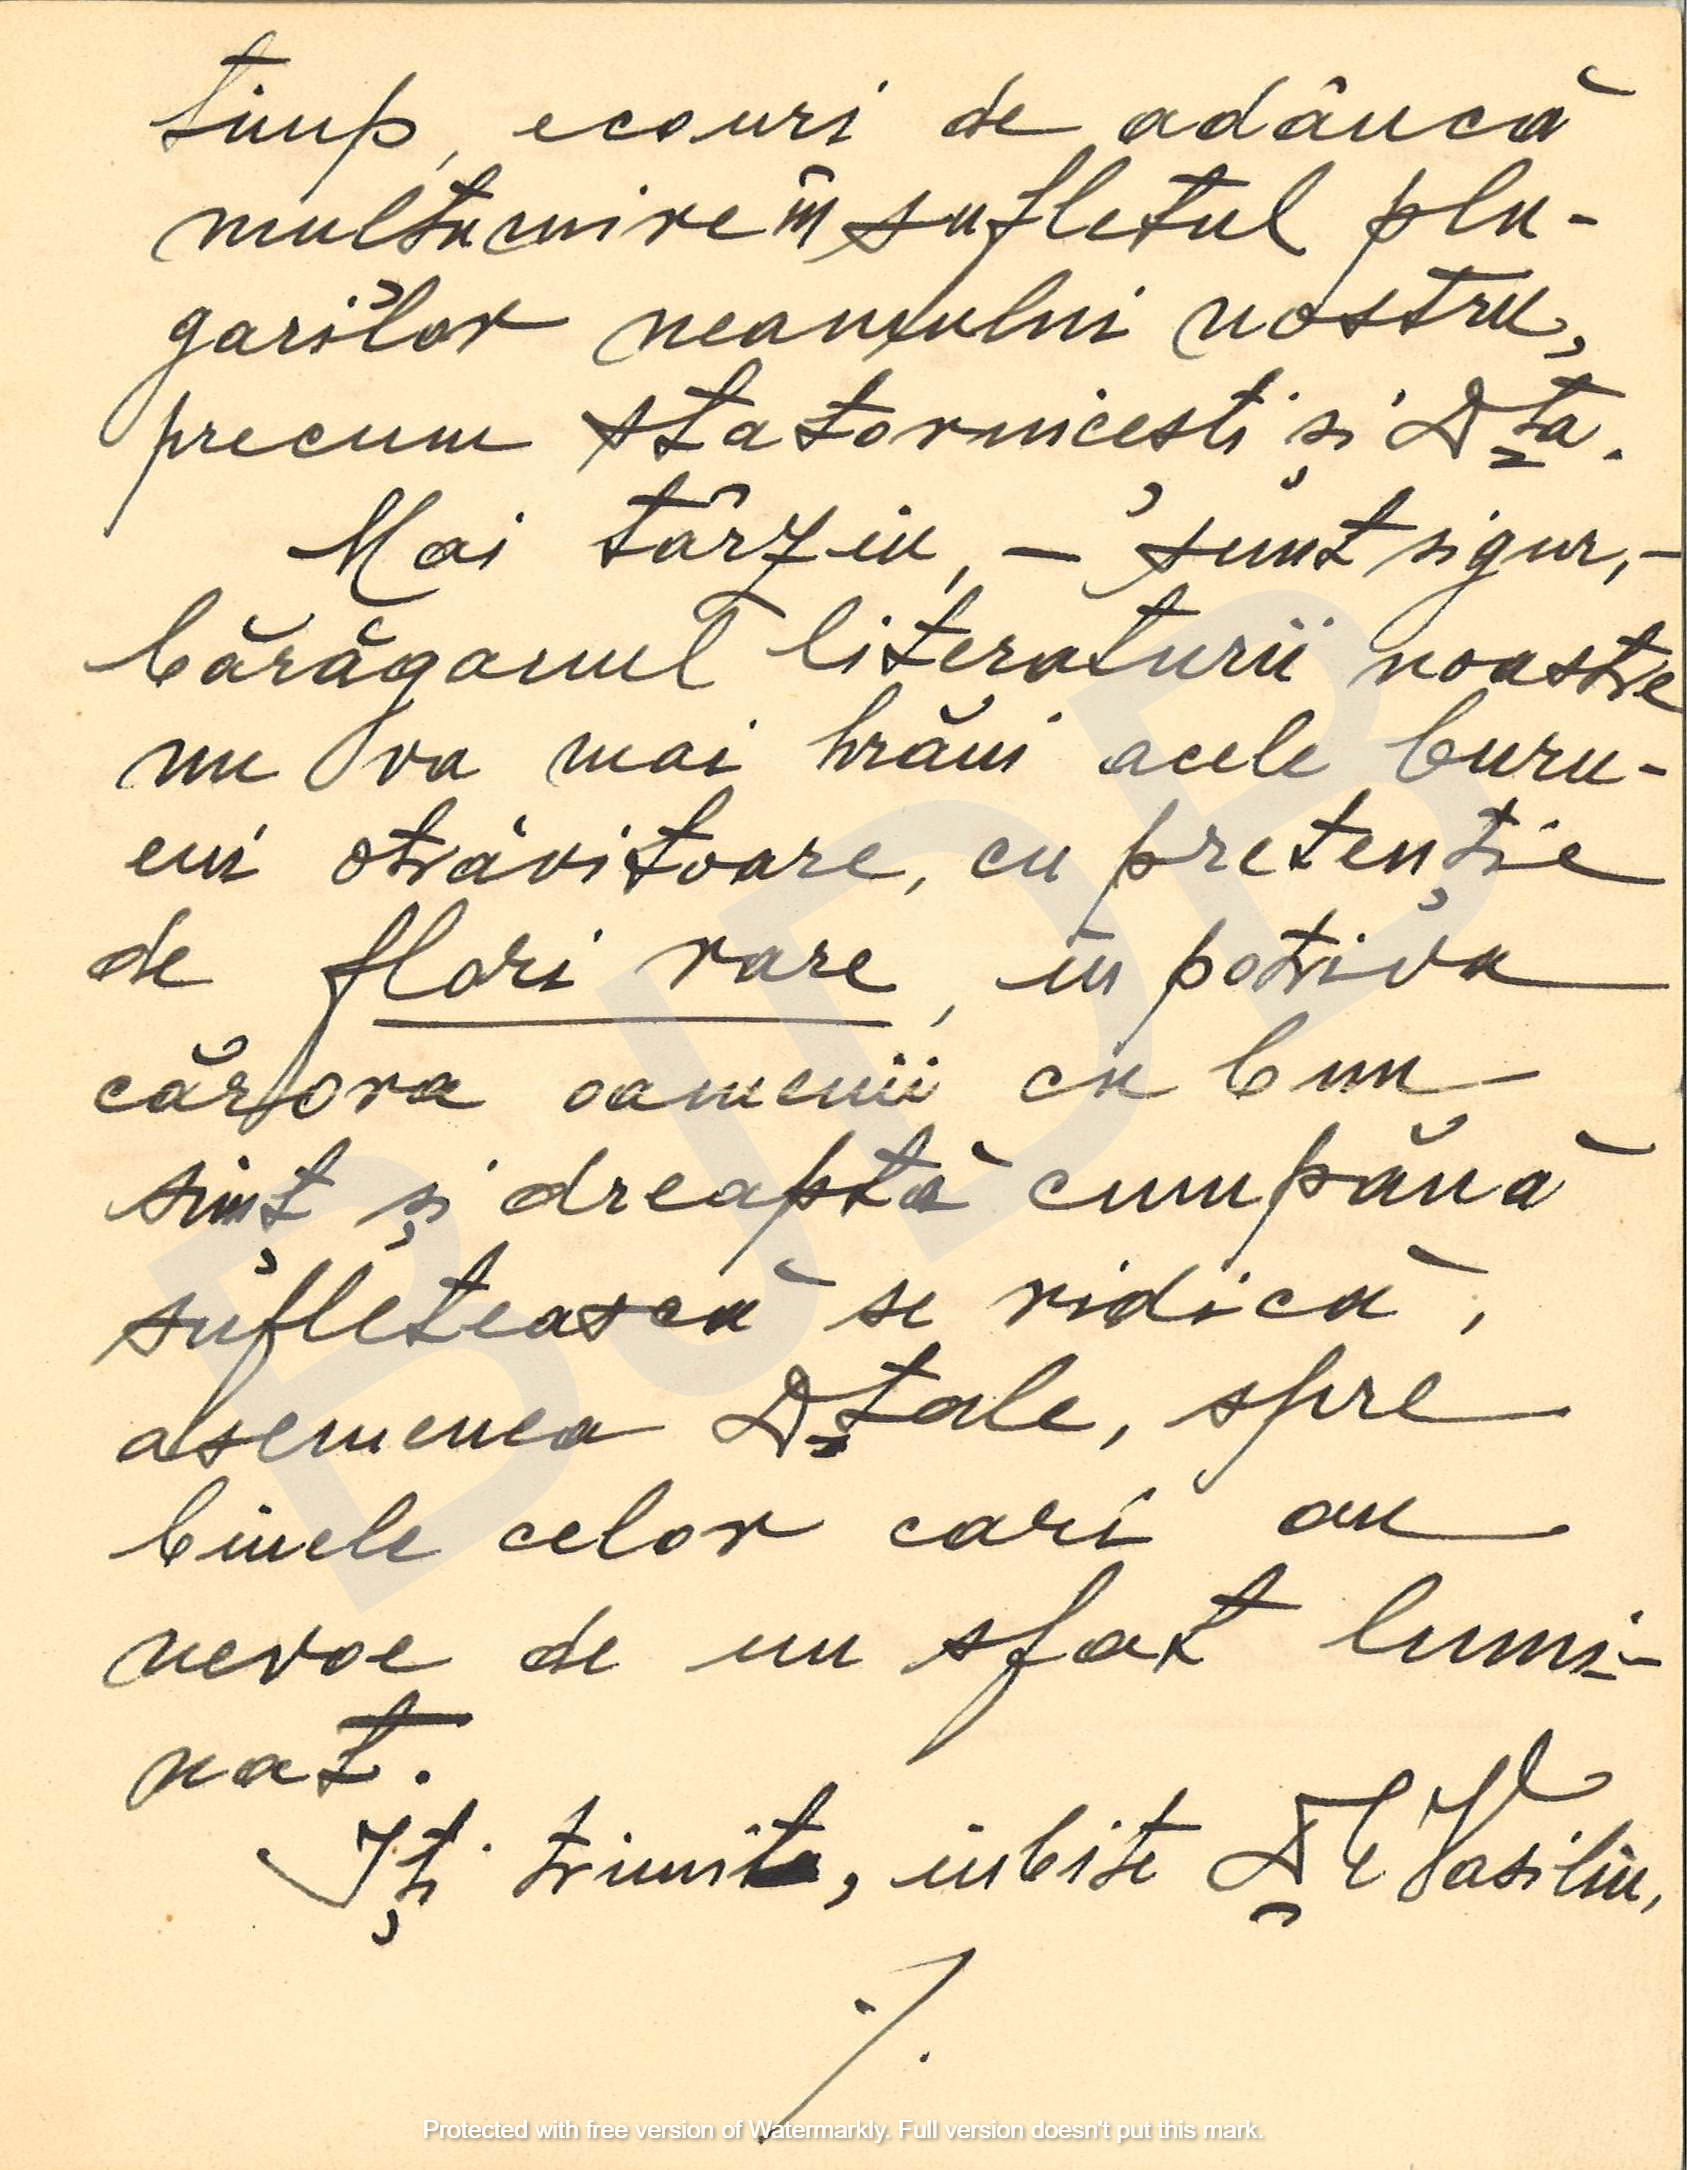 timp, ecouri de adâncă
multumire în sufletul plu-
garilor neamului nostru,
precum statornicești și D-ta.
Mai târziu, – sunt sigur, –
bărăganul literaturii noastre
nu va mai hrăni acele buru-
eni otrăvitoare, cu pretenție
de flori rare, în potriva
cărora oamenii cu bun
simț și dreaptă cumpănă
sufletească se ridică,
asemenea D-tale, spre
binele celor cari au
nevoe de un sfat lumi-
nat.
Iți trimit, iubite D-le Vasiliu,
./.
BJDB
Protected with free version of Watermarkly. Full version doesn't put this mark.